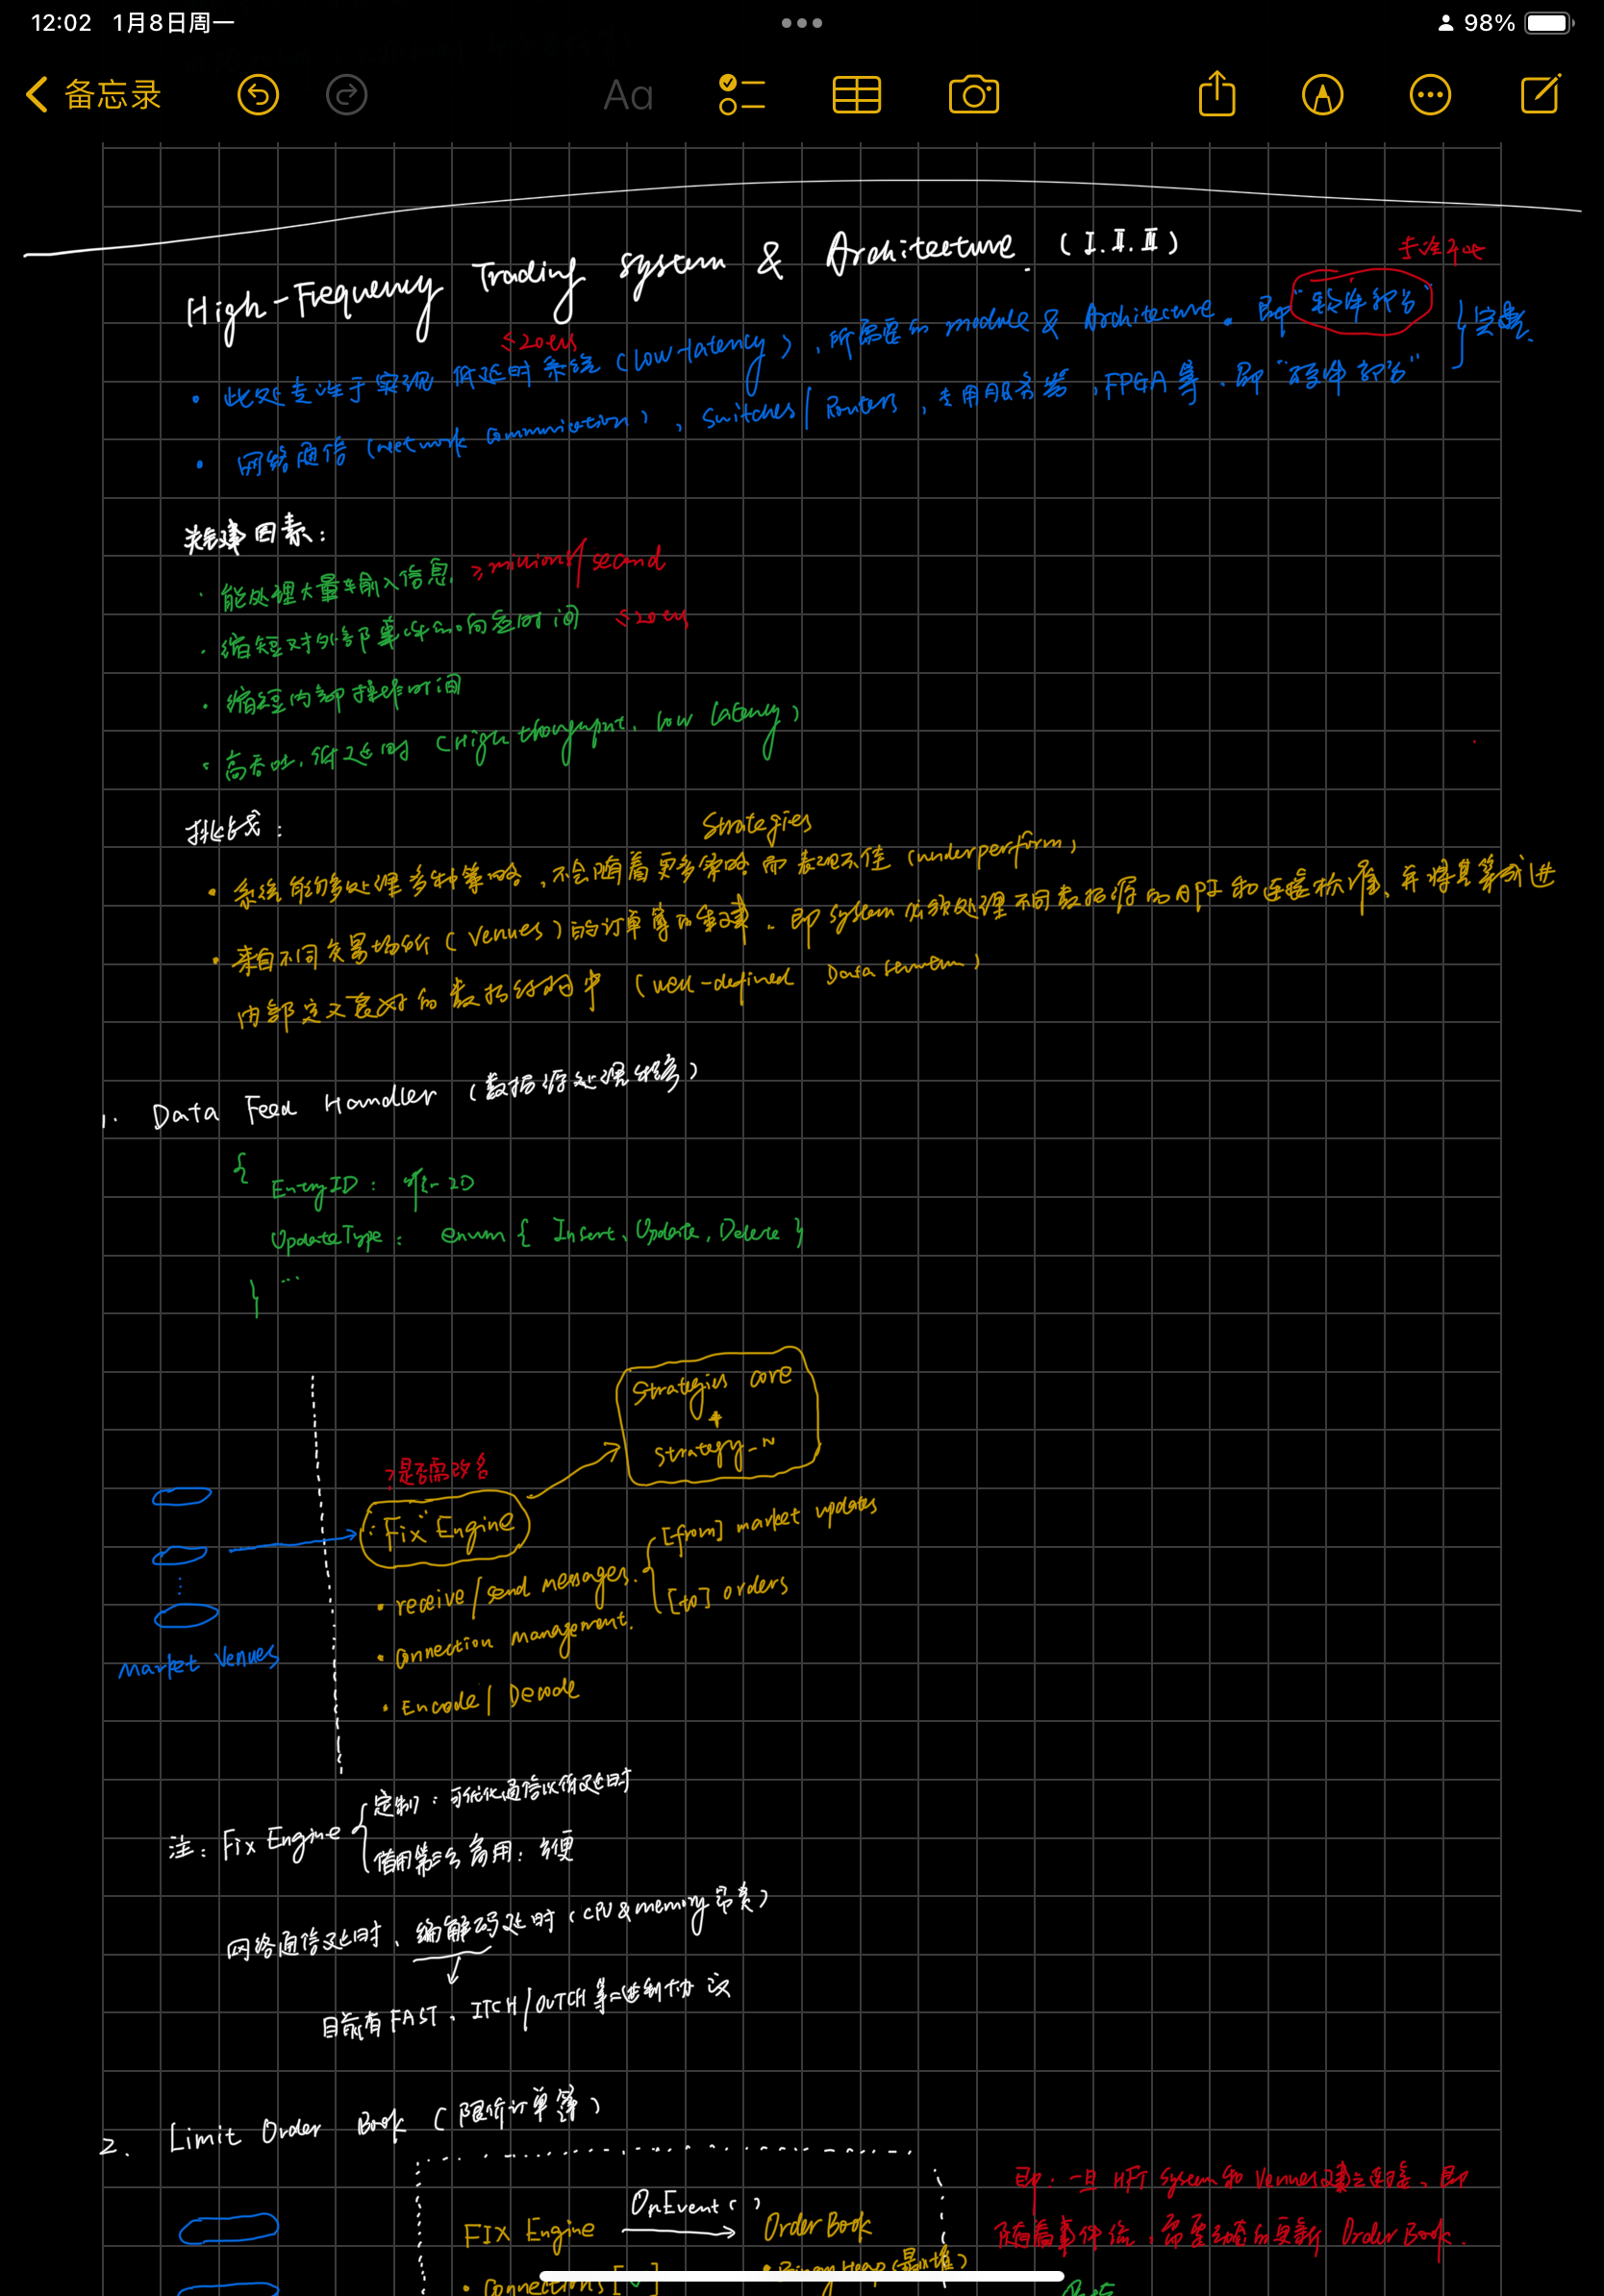 12:02 1月8日周一
98%
备忘录
Aa
High-Frequency Trading System & Architecture. (I.II.III)
专注于此
≤20us
• 此处专注于实现低延时系统(low-latency),所需要的module & Architecure. 即"软件部分"
• 网络通信(Network Communication), Switches/Routers, 专用服务器, FPGA等. 即"硬件部分"
关键因素:
· 能处理大量输入信息 ≥millions/second
· 缩短对外部事件的响应时间 ≤20us
· 缩短内部操作时间
· 高吞吐, 低延时 (High thoughput, low latency)
挑战:
Strategies
• 系统能够处理多种策略, 不会随着更多策略而表现不佳 (underperform)
• 来自不同交易场所(venues)的订单簿的集建. 即system必须处理不同数据源的API和连接标准, 并将其集成进
内部定义良好的数据结构中 (well-defined Data Structure)
1. Data Feed Handler (数据源处理程序)
{
EntryID: 唯一ID
UpdateType: enum { Insert, Update, Delete }
...
}
Strategies core
+
Strategy_N
?是否需改名
"Fix" Engine
• receive/send messages. { [from] market updates
[to] orders
• Connection management.
• Encode/Decode
market Venues
注: Fix Engine { 定制: 可优化通信以低延时
借用第三方商用: 方便
网络通信延时、编解码延时 (CPU & memory 昂贵)
目前有FAST、ITCH/OUTCH等二进制协议
2. Limit Order Book (限价订单簿)
FIX Engine OnEvent() Order Book
即: 一旦HFT System和Venues建立连接, 即
随着事件流, 需要动态的更新 Order Book.
• Connections [ ]
• Binary Heap (最小堆)